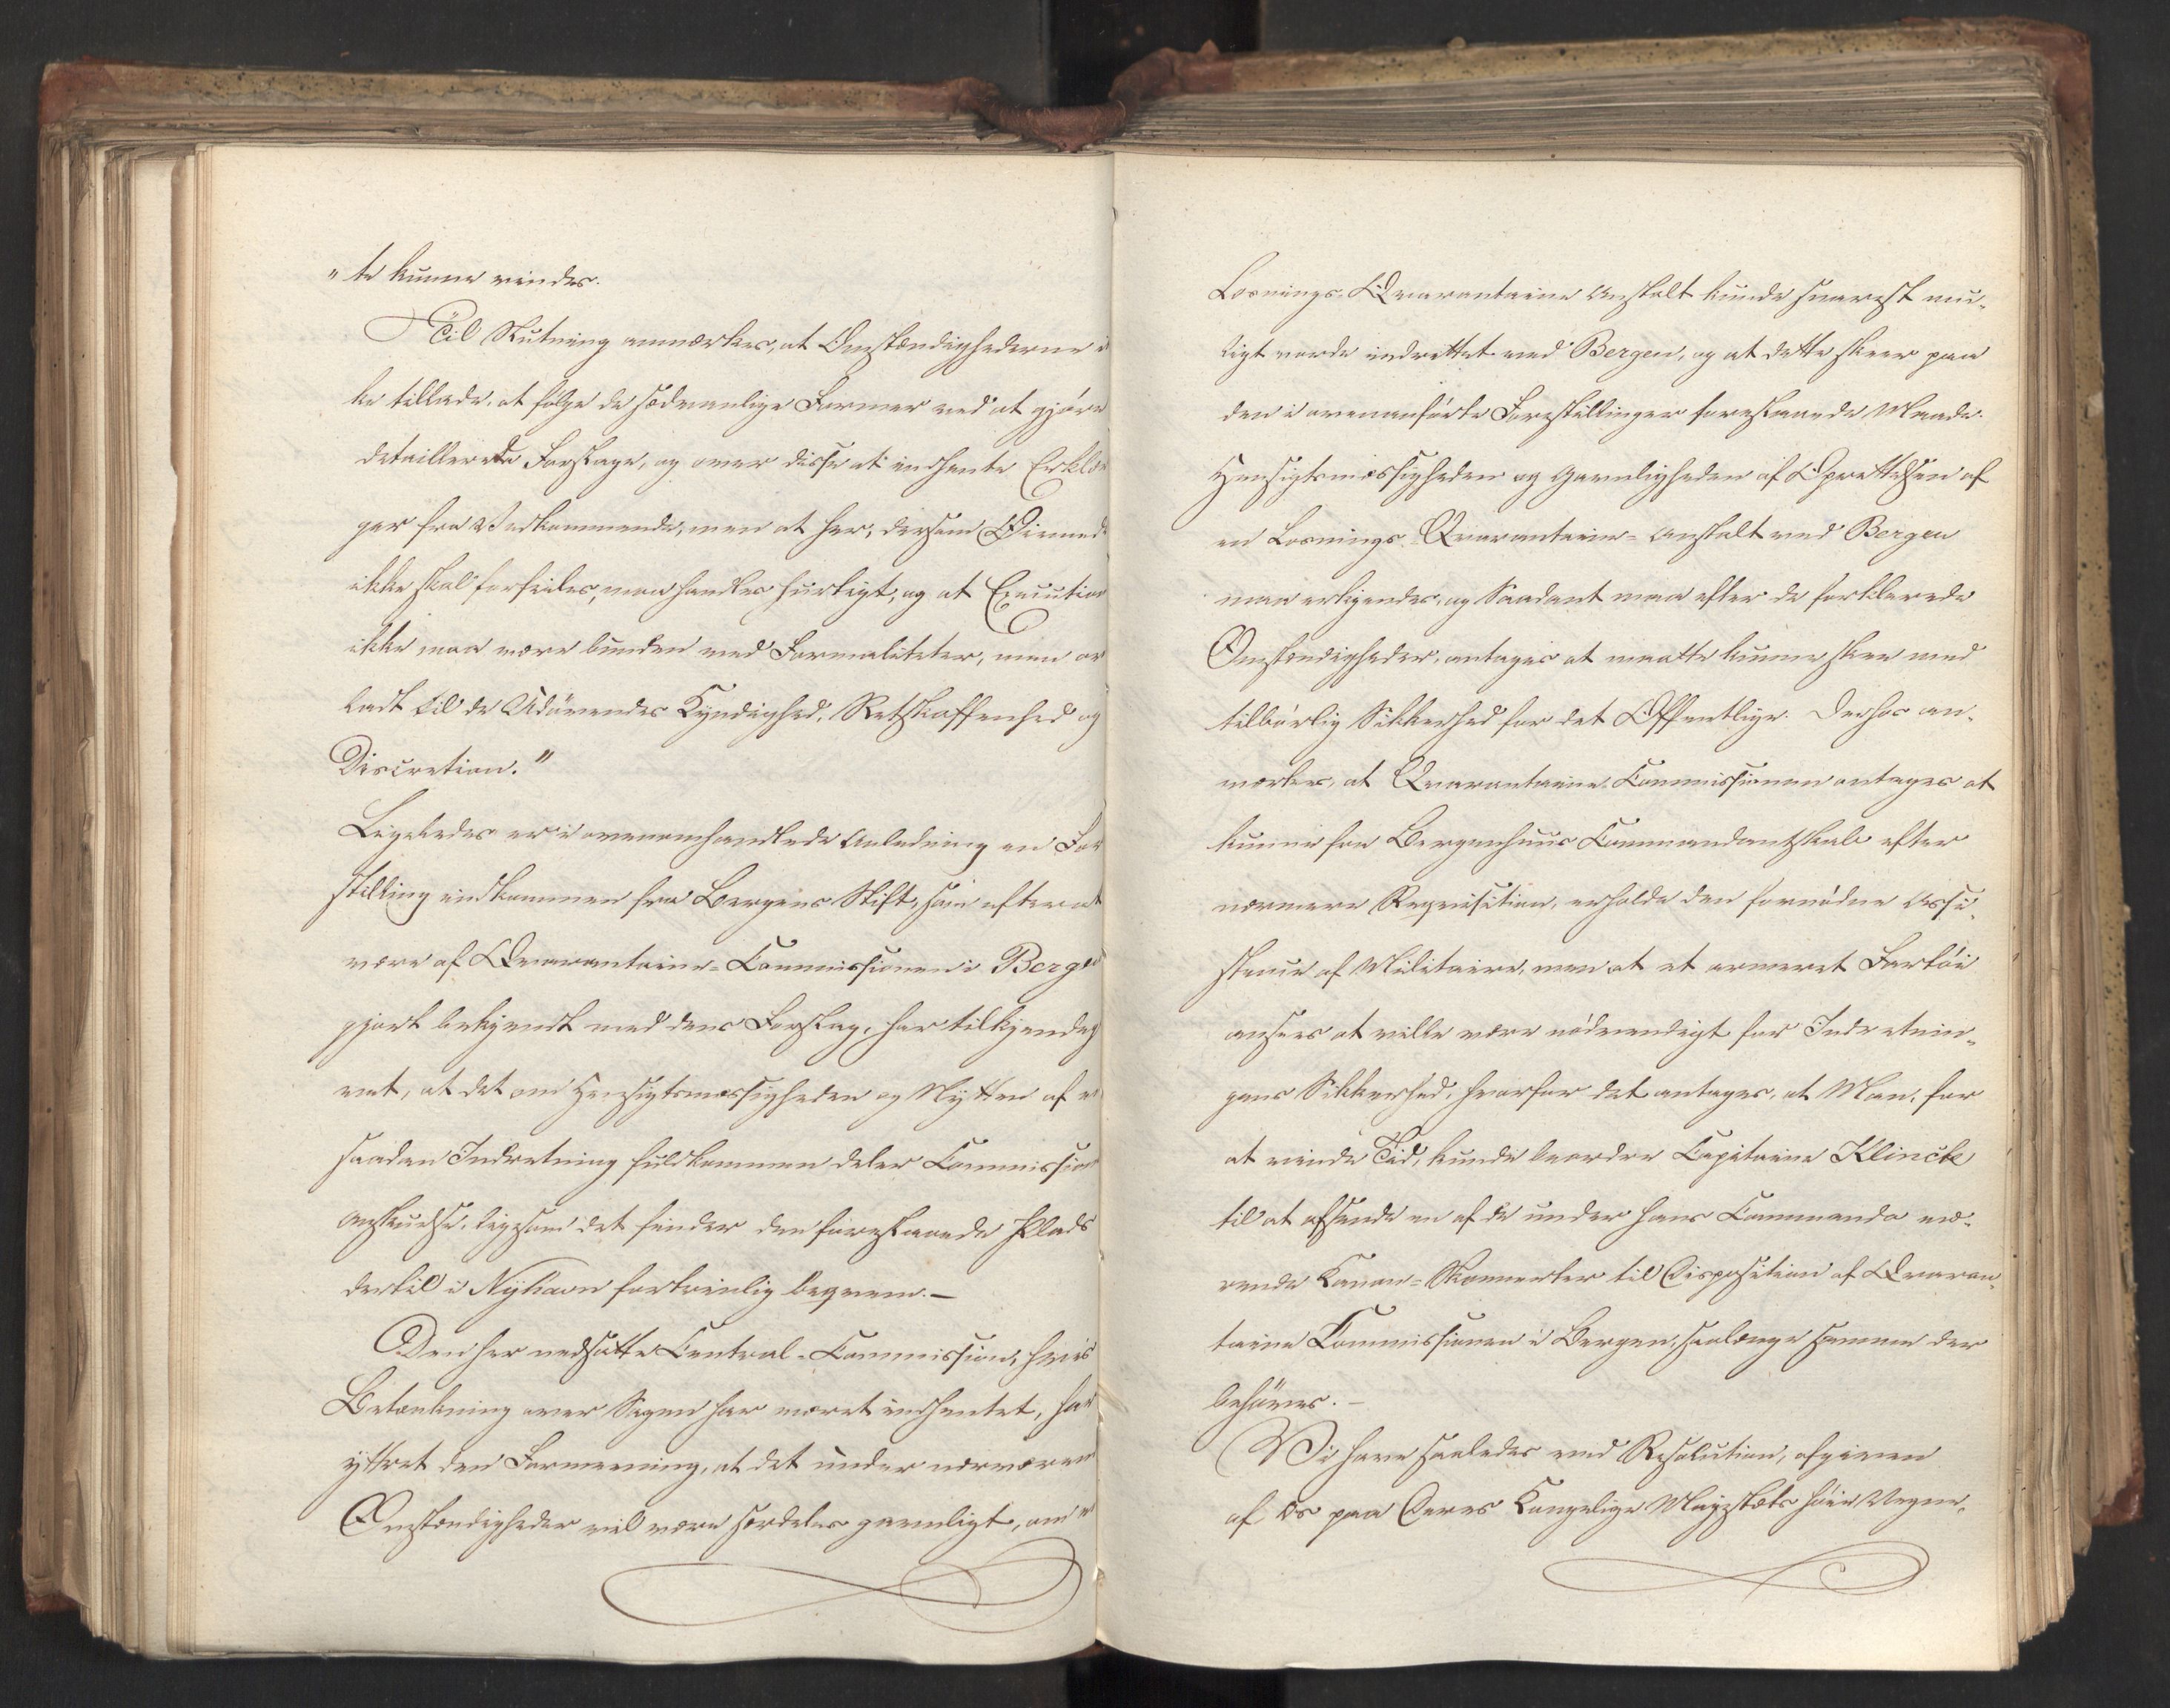 „te kunne vindes.
Til Slutning anmærkes, at Omstændighederne i
ke tillade, at følge de sædvanlige Former ved at gjøre
detaillerede Forslage, og over disse at indhente Erklæ
ger fra Vedkommende, men at her, dersom Øiemed
ikke skal forfeiles, maa handles hurtigt, og at Execution
ikke maa være bunden ved Formaliteter, men o
ladt til de Udøvendes Kyndighed, Retskaffenhed og
Discretion."
Ligeledes er i ovenomhandlede Anledning en For
stilling indkommen fra Bergens Stift, som efter at
være af Qvarantaine-Commissionen i Bergen
gjort bekjendt med dens Forslag, har tilkjendeg
vet, at det om Hensigtsmæssigheden og Nytten af e
saadan Indretning fuldkommen deler Commission
Anskuelse, ligesom det finder den foreslaaede Plads
dertil i Nyhavn fortrinlig beqvem. —
Den her nedsatte Central-Commission, hvis
Betænkning over Sagen har været indhentet, har
yttret den Formening, at det under nærværen
Omstændigheder vil være særdeles gavnligt, om e
Losnings-Qvarantaine Anstalt kunde snarest mu-
ligt vorde indrettet ved Bergen, og at dette skeer paa
den i ovenanførte Forestillinger foreslaaede Maade.
Hensigtsmæssigheden og Gavnligheden af Oprettelsen af
en Losnings-Qvarantaine-Anstalt ved Bergen
maa erkjendes, og Saadant maa efter de forklarede
Omstændigheder, antages at maatte kunne skee med
tilbørlig Sikkerhed for det Offentlige. Derhos an-
mærkes, at Qvarantaine-Commissionen antages at
kunne fra Bergenhuus Commandantskab efter
nærmere Reqvisition, erholde den fornødne Assi-
stence af Militaire, men at et armeret Fartøi
ansees at ville være nødvendigt for Indretnin-
gens Sikkerhed, hvorfor det antages, at Man, for
at vinde Tid, kunde beordre Capitaine Klinck
til at afsende en af de under hans Commando væ-
rende Kanon-Skonnerter til Disposition af Qvaran-
taine Commissionen i Bergen, saalænge samme der
behøves. —
Vi have saaledes ved Resolution, afgiven
af os paa Deres Kongelige Majestæts høie Vegne,